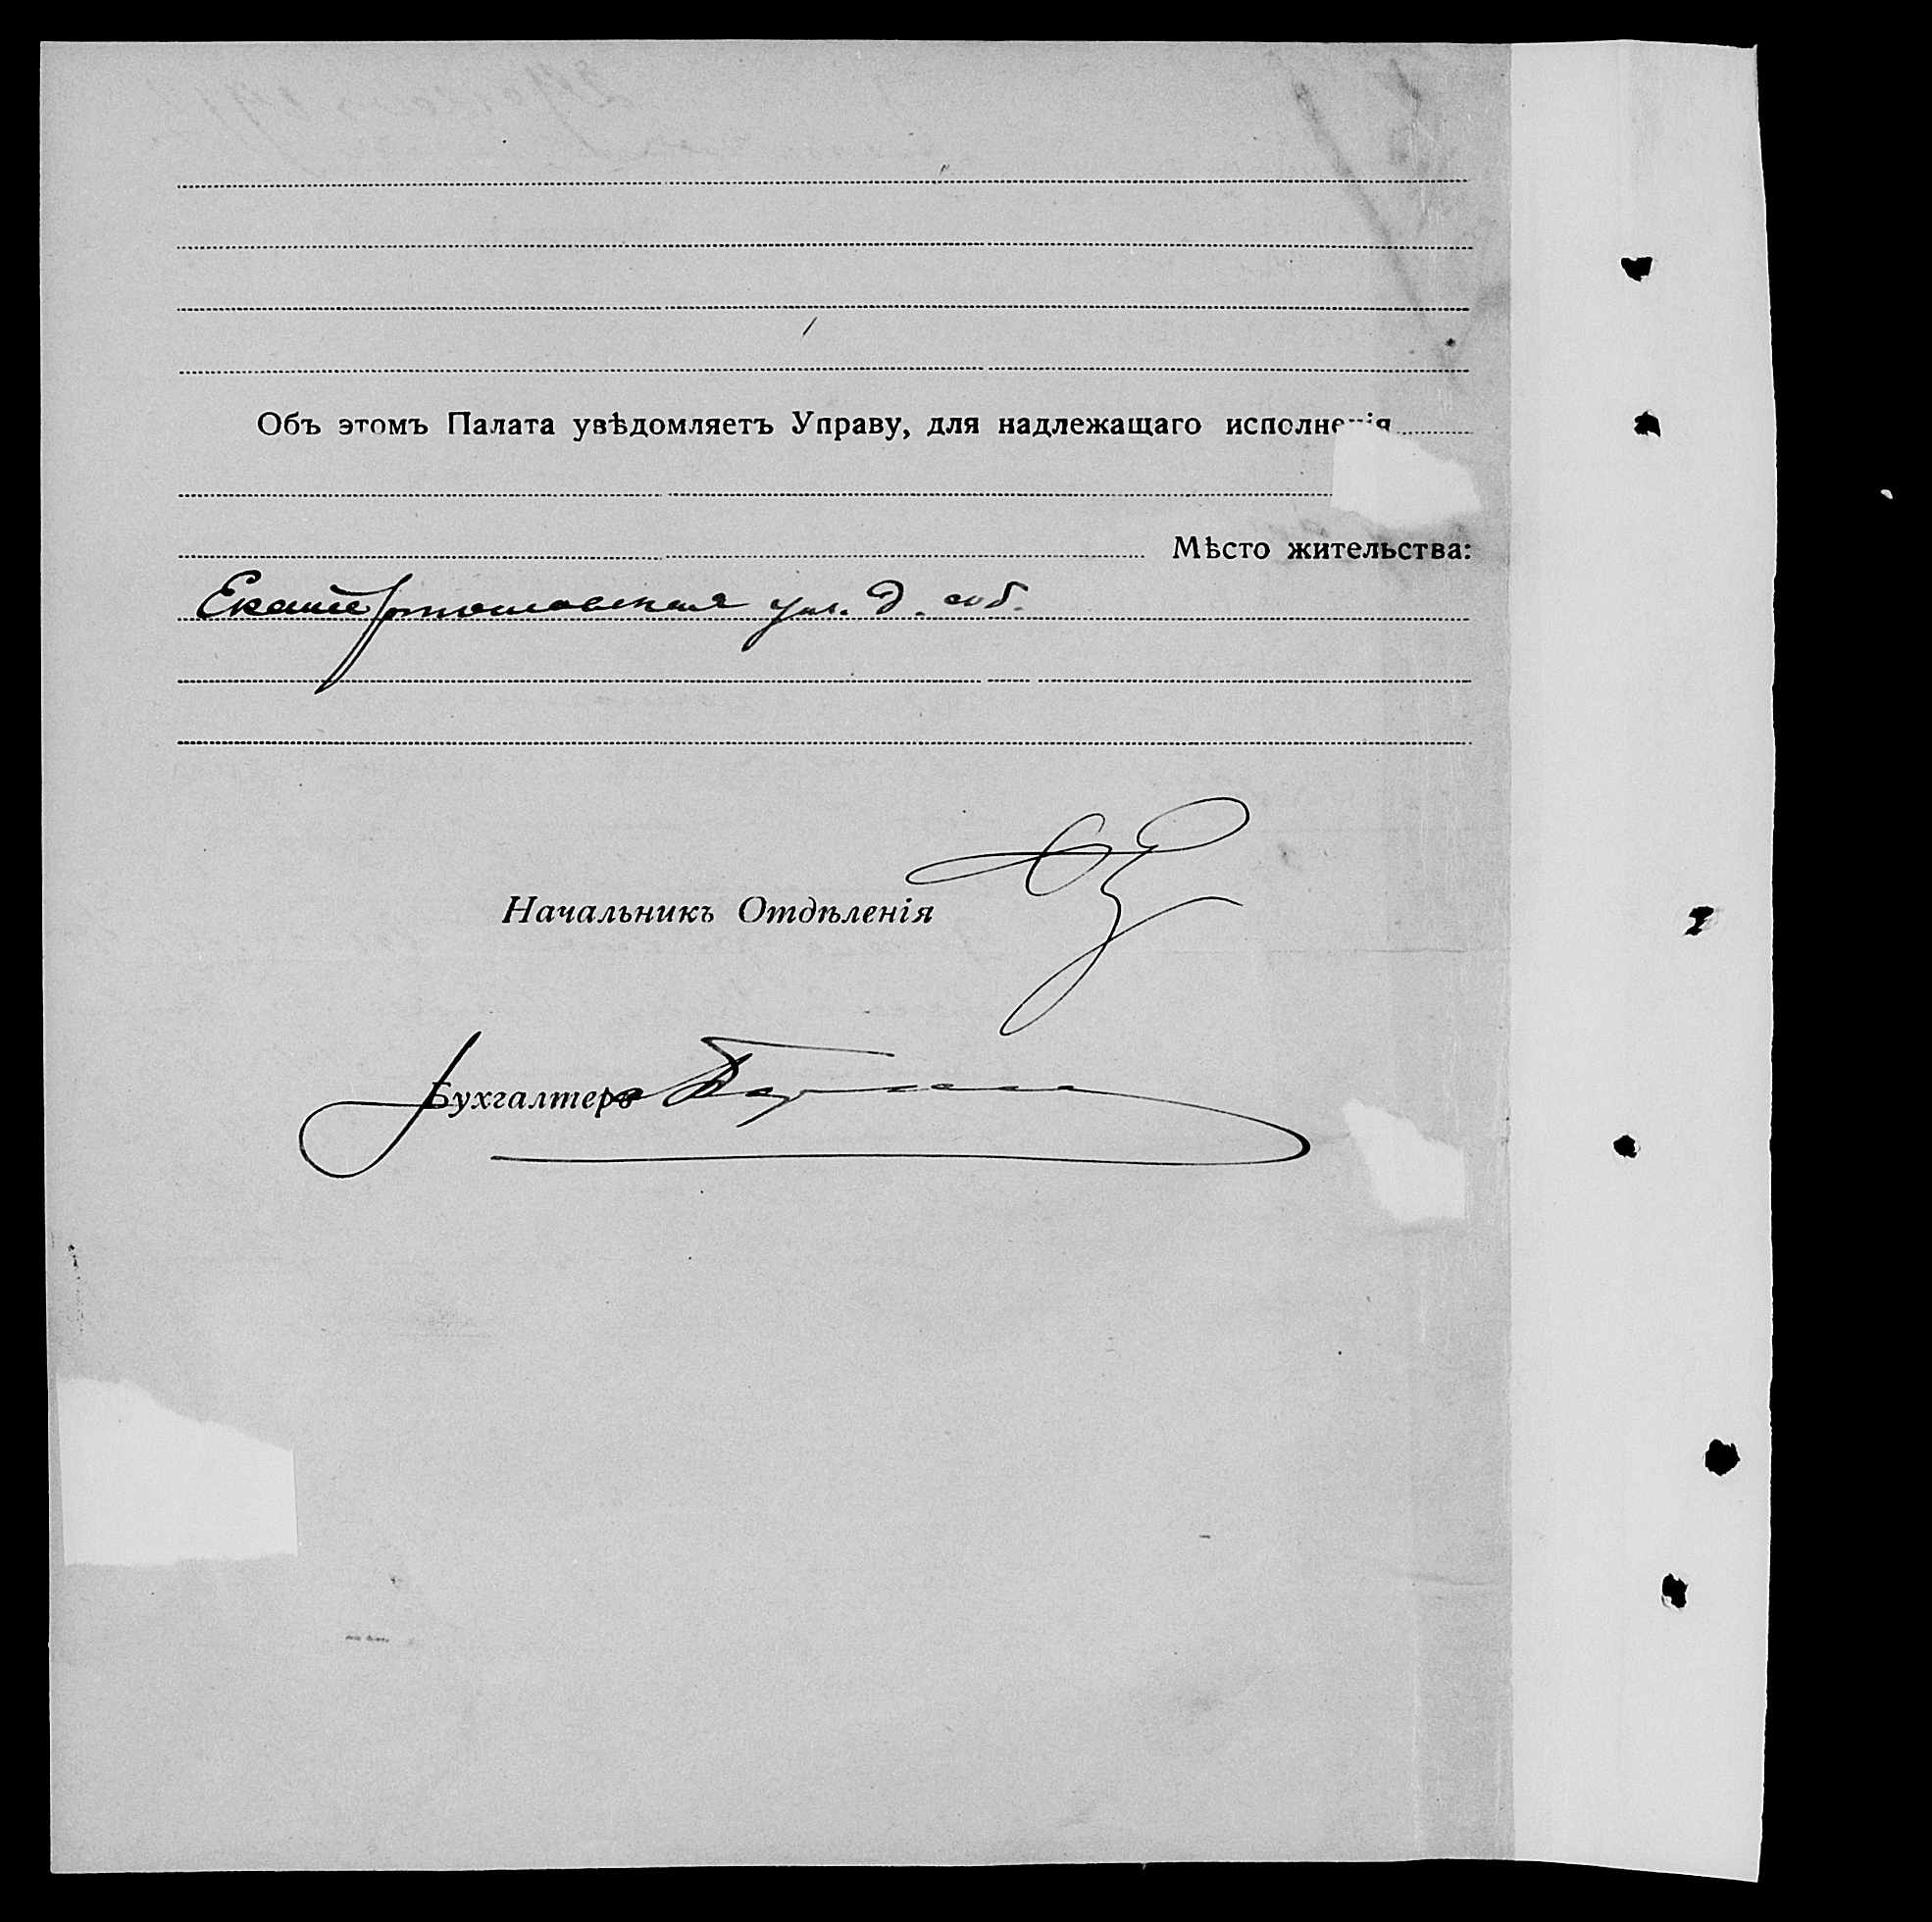 Объ этомъ Палата увѣдомляетъ Управу, для надлежащаго исполненія
Мѣсто жительства:
ул. д. соб.
Начальникъ Отдѣленія
Бухгалтеръ